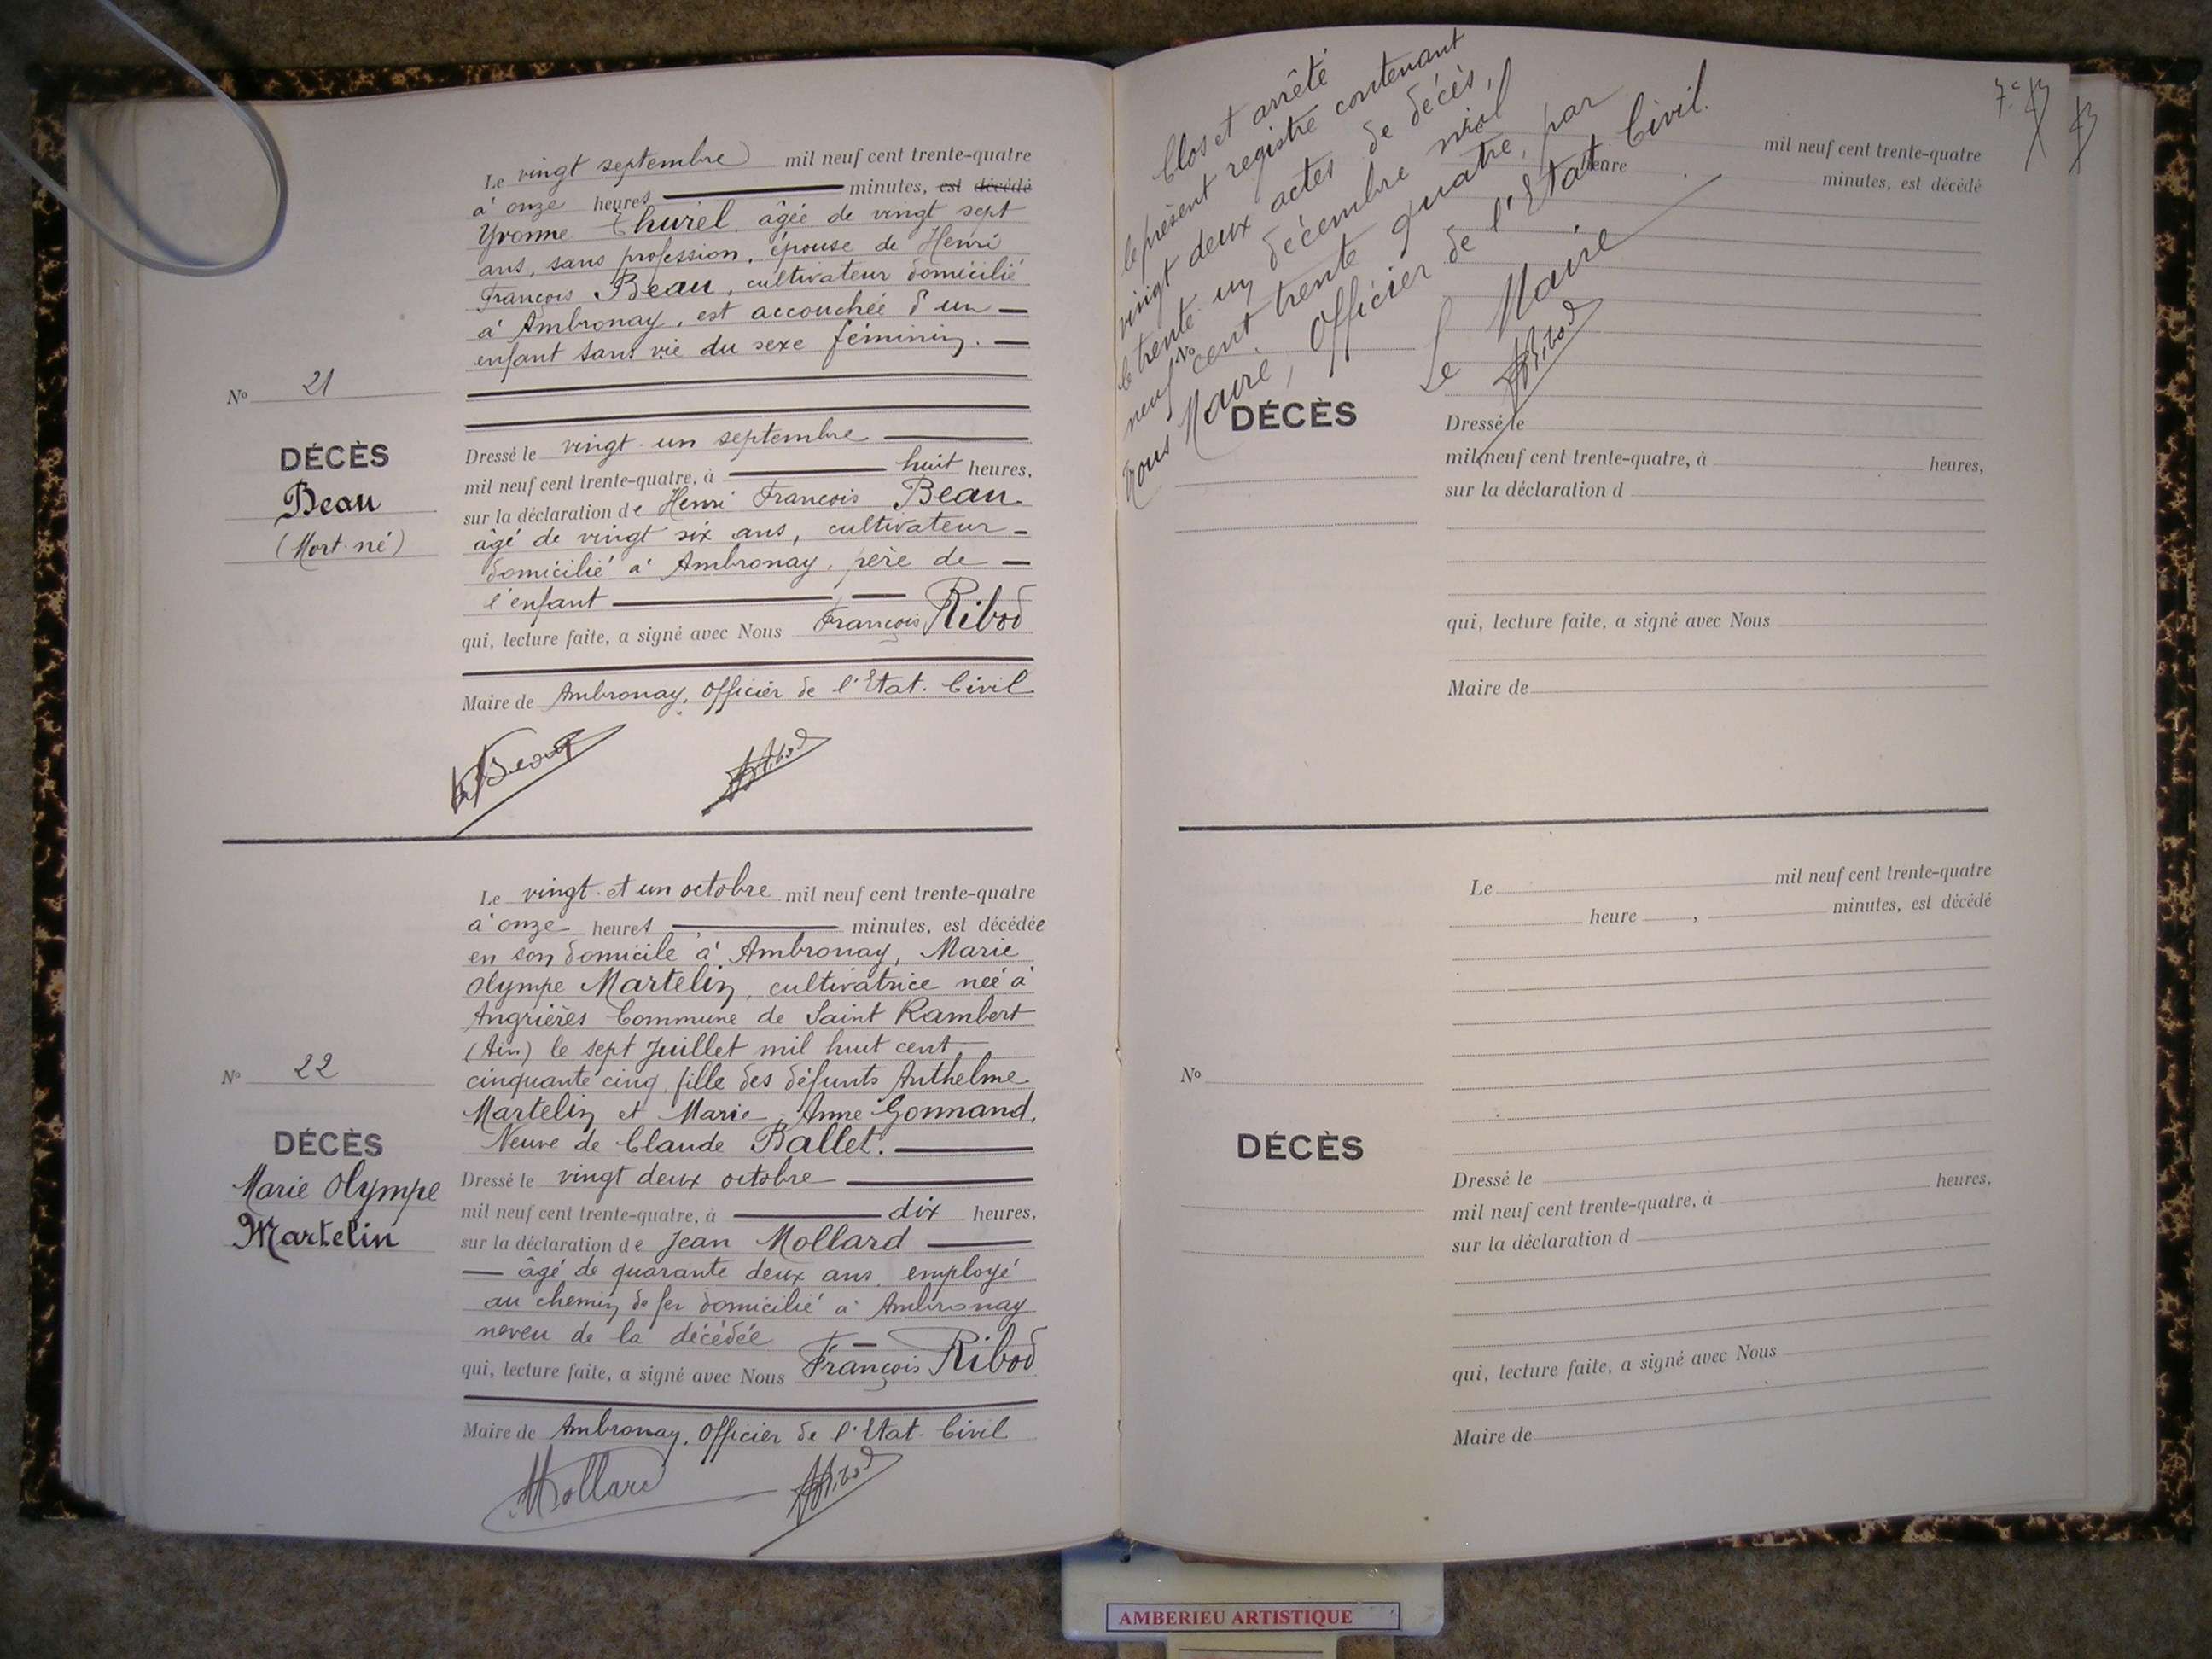 Le vingt septembre mil neuf cent trente-quatre
à onze heures minutes, est décédé
Yvonne Thurel, âgée de vingt sept
ans, sans profession, épouse de Henri
François Beau, cultivateur domicilié
à Ambronay, est accouchée d'un
enfant sans vie du sexe féminin.
No 21
DÉCÈS
Beau
(Mort-né)
Dressé le vingt-un septembre
mil neuf cent trente-quatre, à huit heures,
sur la déclaration de Henri François Beau
âgé de vingt six ans, cultivateur
domicilié à Ambronay, père de
l'enfant
qui, lecture faite, a signé avec Nous François Ribod
Maire de Ambronay, Officier de l'Etat-Civil
Ribod
Le vingt-et un octobre mil neuf cent trente-quatre
à onze heures minutes, est décédée
en son domicile à Ambronay, Marie
Olympe Martelin, cultivatrice née à
Angrières Commune de Saint Rambert
(Ain) le sept Juillet mil huit cent
cinquante cinq, fille des défunts Anthelme
Martelin et Marie-Anne Gonnand,
Veuve de Claude Ballet.
No 22
DÉCÈS
Marie Olympe
Martelin
Dressé le vingt deux octobre
mil neuf cent trente-quatre, à dix heures,
sur la déclaration de Jean Mollard
âgé de quarante deux ans, employé
au chemin de fer domicilié à Ambronay
neveu de la décédée
qui, lecture faite, a signé avec Nous François Ribod
Maire de Ambronay, Officier de l'Etat-Civil
Mollard Ribod
Clos et arrêté
le présent registre contenant
vingt deux actes de décès,
le trente un décembre mil
neuf cent trente quatre, par
nous Maire, Officier de l'Etat Civil.
Le Maire
Ribod
mil neuf cent trente-quatre
heure minutes, est décédé
No
DÉCÈS
Dressé le
mil neuf cent trente-quatre, à heures,
sur la déclaration d
qui, lecture faite, a signé avec Nous
Maire de
Le mil neuf cent trente-quatre
heure , minutes, est décédé
No
DÉCÈS
Dressé le
mil neuf cent trente-quatre, à heures,
sur la déclaration d
qui, lecture faite, a signé avec Nous
Maire de
AMBERIEU ARTISTIQUE